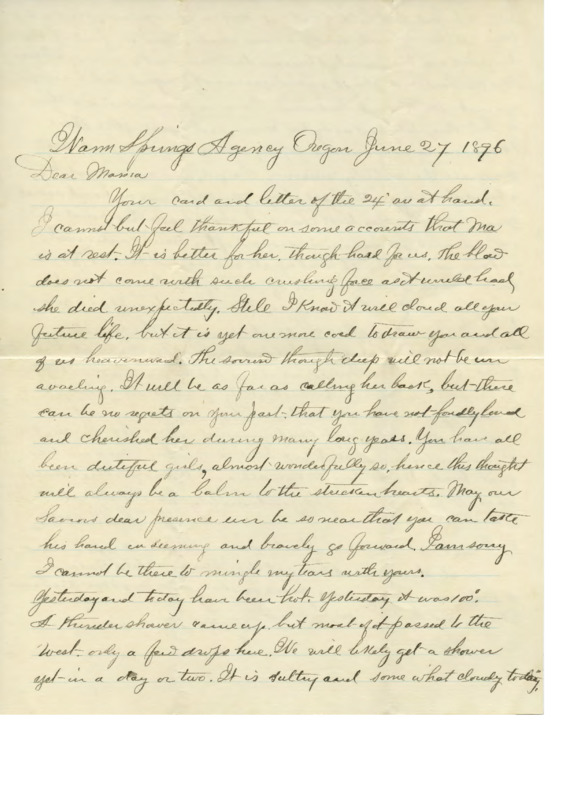 Warm Springs Agency Oregon June 27 1896
Dear Mama
Your card and letter of the 24" are at hand.
I cannot but feel thankful on some accounts that Ma
is at rest. It is better for her, though hard for us. The blow
does not come with such crushing force as it would had
she died unexpectedly. Still I know it will cloud all your
future life, but it is yet one more cord to draw you and all
of us heavenward. The sorrow though deep will not be un
availing. It will be as far as calling her back, but there
can be no regrets on your part, that you have not fondly loved
and cherished her during many long years. You have all
been dutiful girls, almost wonderfully so, hence this thought
will always be a balm to the stricken hearts. May our
Saviors dear presence ever be so near that you can
his hand in seeming and bravely go forward. I am sorry
I cannot be there to mingle my tears with yours.
Yesterday and today have been hot. Yesterday it was 100°.
A thunder shower came up, but most of it passed to the
West. only a few drops here. We will likely get a shower
yet in a day or two. It is sultry and some what cloudy today.